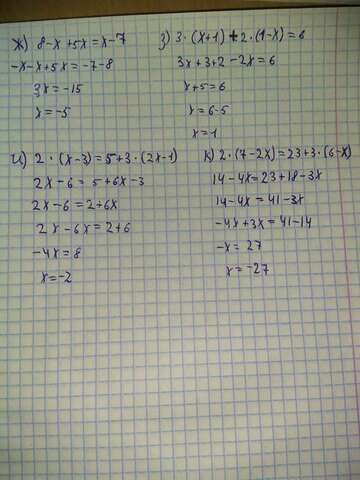 ж) 8-x+5x=x-7
-x-x+5x=-7-8
3x=-15
x=-5
з) 3·(x+1)+2·(1-x)=6
3x+3+2-2x=6
x+5=6
x=6-5
x=1
и) 2·(x-3)=5+3·(2x-1)
2x-6=5+6x-3
2x-6=2+6x
2x-6x=2+6
-4x=8
x=-2
к) 2·(7-2x)=23+3·(6-x)
14-4x=23+18-3x
14-4x=41-3x
-4x+3x=41-14
-x=27
x=-27